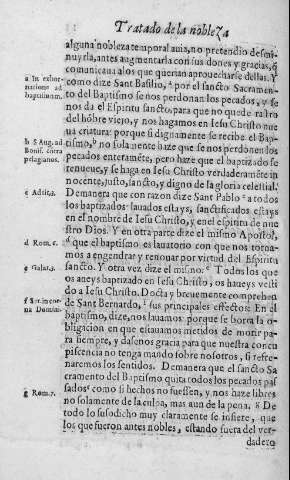 Tratado de la nobleza
alguna nobleza temporal auia, no pretendio desmi-
nuyrla, antes augmentarla con sus dones y gracias, q̃
comunicaua a los que querian aprouecharse dellas. Y
a In exhor-
natione ad
baptismum.
como dize Sant Basilio, ª por el sancto Sacramen-
to del Baptismo se nos perdonan los pecados, y se
nos da el Espiritu sancto, para que no quede rastro
del hõbre viejo, y nos hagamos en Iesu Christo nue
ua criatura: porque si dignamente se recibe el Bap-
b S Aug. ad
Bonif. cõtra
pelagianos.
tismo, ᵇ no sola mente haze que se nos perdonen los
pecados enteramẽte, pero haze que el baptizado se
renueue, y se haga en Iesu Christo verdaderamẽte in
nocente, justo, sancto, y digno de la gloria celestial.
c Actu.2.
Demanera que con razon dize Sant Pablo ᶜ a todos
los baptizados: lauados estays, sanctificados estays
en el nombre de Iesu Christo, y en el espiritu de nue
stro Dios. Y en otra parte dize el mismo Apostol,
d Rom. 6.
ᵈ que el baptismo es lauatorio con que nos torna-
mos a engendrar y renouar por virtud del Espiritu
e Galat.3.
sancto. Y otra vez dize el mismo: ᵉ Todos los que
os aueys baptizado en Iesu Christo, os haueys vesti
do a Iesu Christo. Docta y breuemente comprehen
f
de Sant Bernardo, ᶠ sus principales effectos: En el
baptismo, dize, nos lauamos porque se borra la o-
bligacion en que estauamos metidos de morir pa-
ra siempre, y dasenos gracia para que nuestra concu
piscencia no tenga mando sobre nosotros, si refre-
naremos los sentidos. Demanera que el sancto Sa
cramento del Baptismo quita todos los pecados pas
g Rom.7.
sados ᵍ como si hechos no fuessen, y nos haze libres
no solamente de la culpa, mas aun de la pena. g De
todo lo susodicho muy claramente se infiere, que
los que fueron antes nobles, estando fuera del ver-
dadero